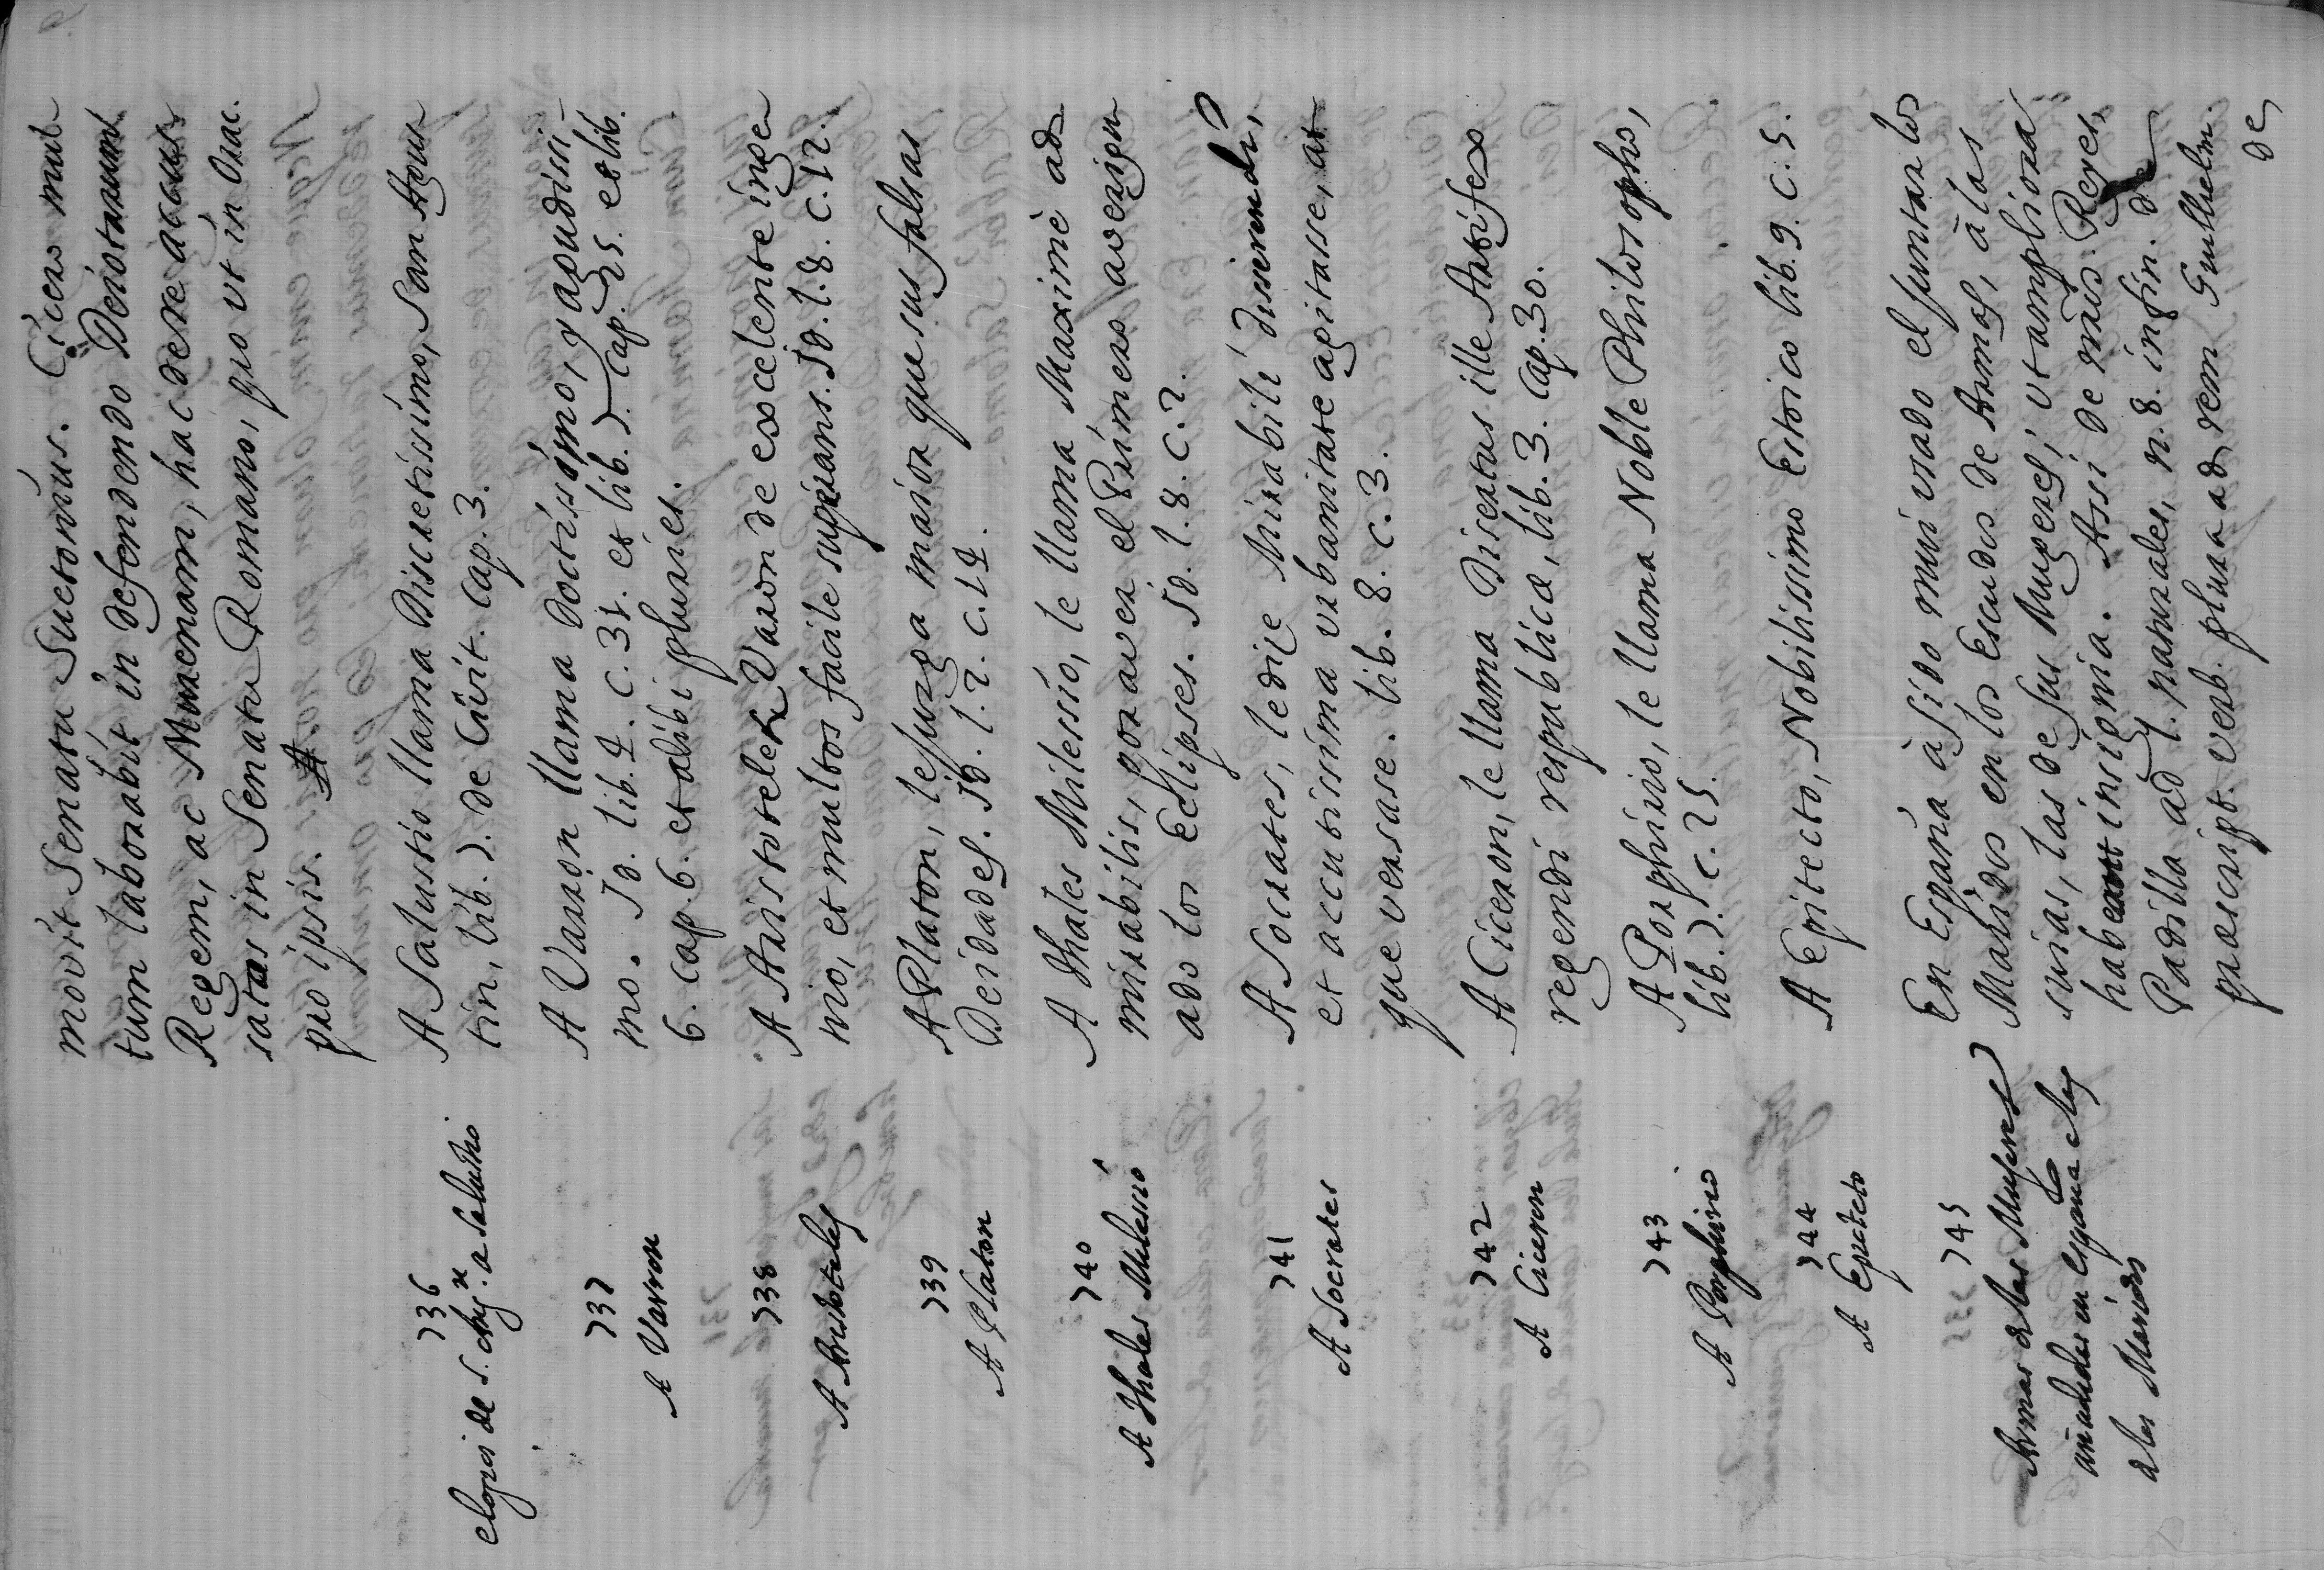 movit Senatu Suetonius. Cicero mul
tum laborabit in defendendo Deiotarum
Regem, ac Muraenam, hac de re accus
satas in Senatu Romano, quo ut in Orac.
pro ipsis.
736
elogios de S. Agn. a Salustio
A Salustio llama Discretissimo, San Agus
tin, lib. 7. de Civit. cap. 3.
737
A Varron
A Varron llama Doctissimo, y agudissi-
mo. Id. lib. 4. c. 31. et lib. 7. cap. 25. et lib.
6. cap. 6. et alibi pluries.
738
A Aristoteles
A Aristoteles Varon de excelente inge
nio, et multos facile superans. Id. l. 8. c. 12.
739
A Platon
A Platon, le juzga maior que sus falsas
Deidades. Id. l. 2. c. 14.
740
A Thales Milessio
A Thales Milessio, le llama Maxime ad
mirabilis, por aver el Primero averigu
ado los Eclipses. Id. l. 8. c. 2.
741
A Socrates
A Socrates, le dize Mirabili disserendi,
et accutissima urbanitate agitasse, at
que versase. lib. 8. c. 3.
742
A Ciceron
A Ciceron, le llama Disertus ille Artifex
regendi respublicæ, lib. 3. cap. 30.
743
A Porphirio
A Porphirio, le llama Noble Philosopho,
lib. 7. c. 25.
744
A Epicteto
A Epitecto, Nobilissimo Estoico lib. 9. c. 5.
745
Armas de las Mujeres
añadidas en España a las
de los Maridos
En España à sido mui usado el juntar los
Maridos en los Escudos de Armas, à las
suias, las de sus Mugeres, ut ampliora
habeant insignia. Assi de mas. Reyes,
Padilla ad l. naturales, n. 8. in fin. de
præscript. verb. plura ad rem Gullielm.
de